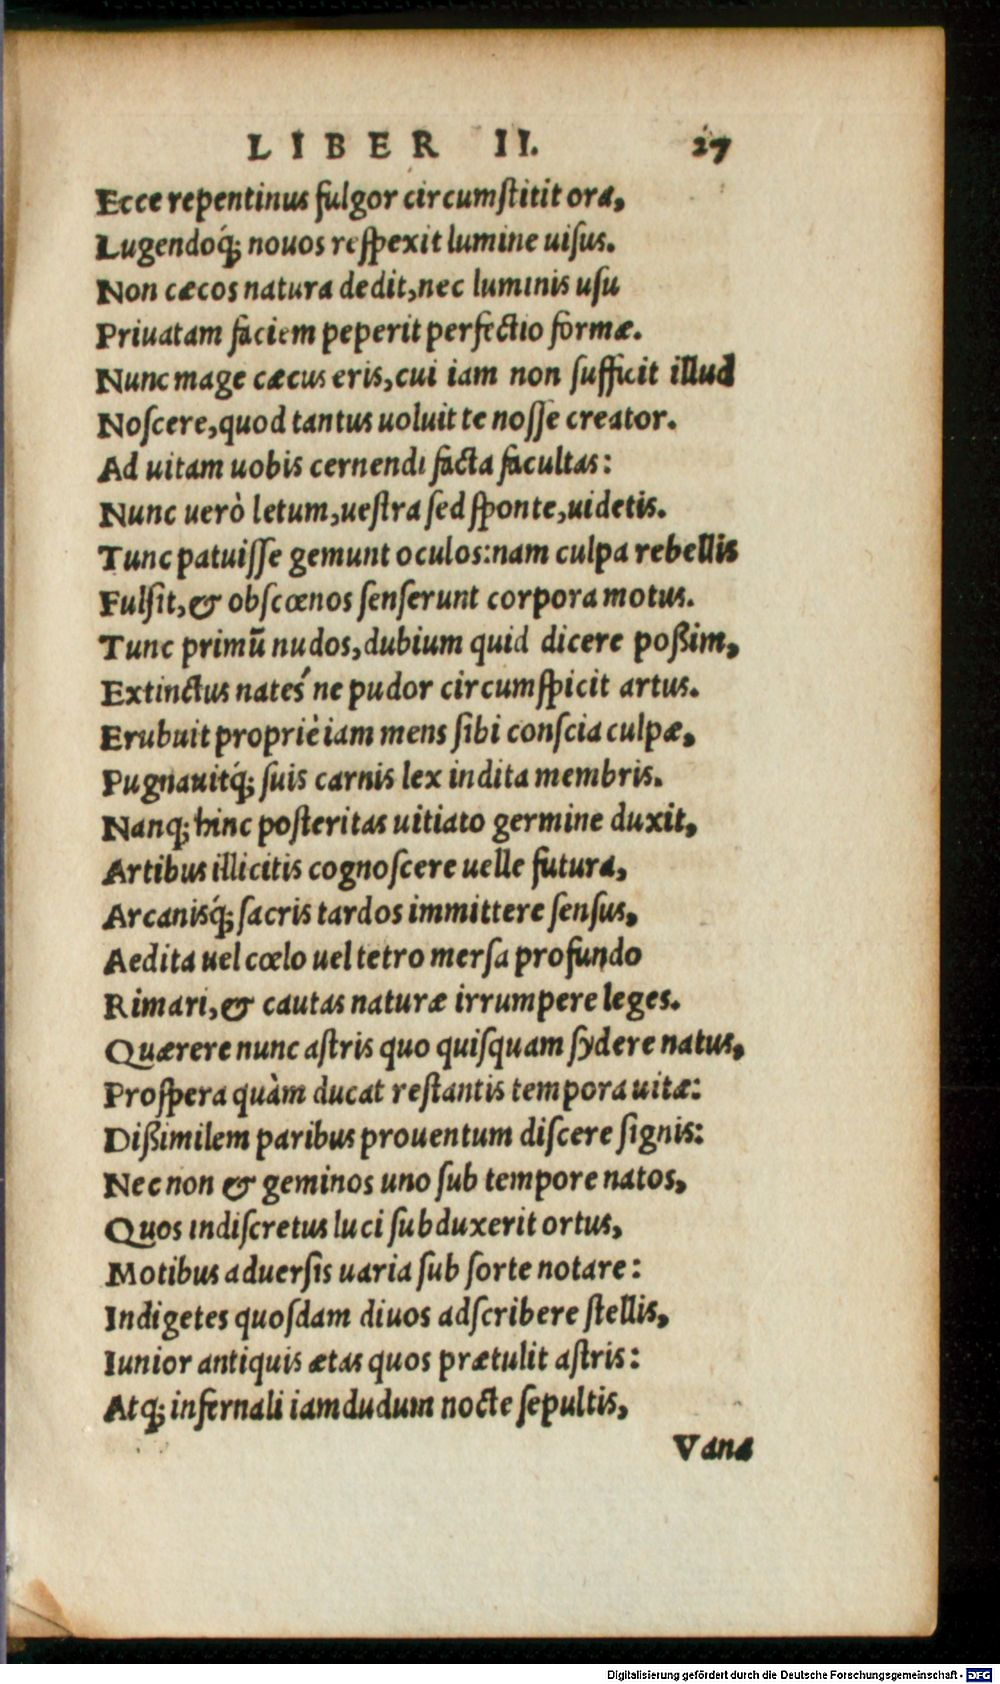 LIBER II. 27
Ecce repentinus fulgor circumſtitit ora,
Lugendoq́; nouos reſpexit lumine uiſus.
Non cæcos natura dedit, nec luminis uſu
Priuatam faciem peperit perfectio formæ.
Nunc mage cæcus eris, cui iam non ſufficit illud
Noſcere, quod tantus uoluit te noſſe creator.
Ad uitam uobis cernendi facta facultas:
Nunc uerò letum, ueſtra ſed ſponte, uidetis.
Tunc patuiſſe gemunt oculos: nam culpa rebellis
Fulſit, & obſcœnos ſenſerunt corpora motus.
Tunc primū nudos, dubium quid dicere poßim,
Extinctus nateś ne pudor circumſpicit artus.
Erubuit propriè iam mens ſibi conſcia culpæ,
Pugnauitq́; ſuis carnis lex indita membris.
Nanq; hinc poſteritas uitiato germine duxit,
Artibus illicitis cognoſcere uelle futura,
Arcanisq́; ſacris tardos immittere ſenſus,
Aedita uel cœlo uel tetro merſa profundo
Rimari, & cautas naturæ irrumpere leges.
Quærere nunc aſtris quo quiſquam ſydere natus,
Proſpera quàm ducat reſtantis tempora uitæ:
Dißimilem paribus prouentum diſcere ſignis:
Nec non & geminos uno ſub tempore natos,
Quos indiſcretus luci ſubduxerit ortus,
Motibus aduerſis uaria ſub ſorte notare:
Indigetes quoſdam diuos adſcribere ſtellis,
Iunior antiquis ætas quos prætulit aſtris:
Atq; infernali iamdudum nocte ſepultis,
Vana
Digitalisierung gefördert durch die Deutsche Forschungsgemeinschaft - DFG